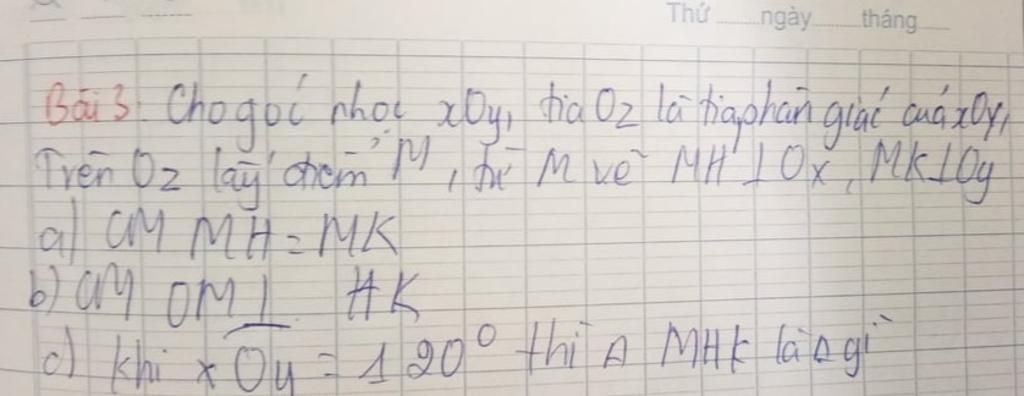 Thứ ngày tháng
Bài 3. Cho góc nhọc xOy, tia Oz là tia phân giác của xOy,
Trên Oz lấy điểm M, từ M vẽ MH ⊥ Ox, MK ⊥ Oy
a) CM MH = MK
b) CM OM ⊥ HK
c) khi xOy = 120° thì Δ MHK là Δ gì